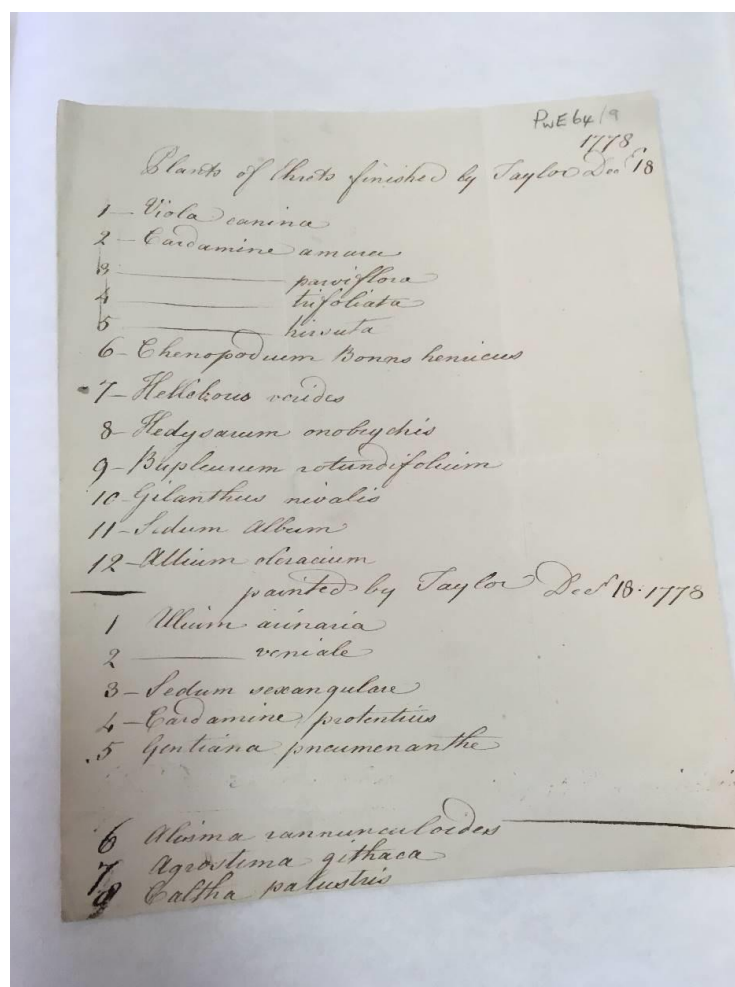 PwE64/9
1778
Plants of Ehrets finished by Taylor Decr 18
1 - Viola canina
2 - Cardamine amara
3 ——— parviflora
4 ——— trifoliata
5 ——— hirsuta
6 - Chenopodium Bonns henricus
7 - Hellebous verides
8 - Hedysarum onobrychis
9 - Bupleurum rotundifolium
10 - Gilanthus nivalis
11 - Sedum Album
12 - Allium oleracium
painted by Taylor Decr 18. 1778
1 Allium arinaria
2 ——— veniale
3 - Sedum sexangulare
4 - Cardamine protentius
5 Gentiana pneumenanthe
6 Alisma rannunculoides
7 Agrostima githaca
8 Caltha palustris